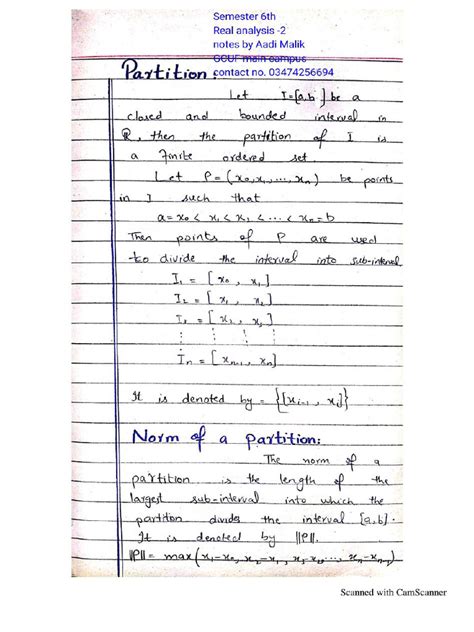 Semester 6th
Real analysis -2
notes by Aadi Malik
GCUF main campus
Partition: contact no. 03474256694
Let I=[a,b] be a
closed and bounded interval in
R, then the partition of I is
a finite ordered set.
Let P=(x₀,x₁,...,xₙ) be points
in I such that
a=x₀< x₁<x₂<...<xₙ=b
Then points of P are used
to divide the interval into sub-interval
I₁ = [x₀, x₁]
I₂ = [x₁, x₂]
I₃ = [x₂, x₃]
Iₙ = [xₙ₋₁, xₙ]
It is denoted by = {[xᵢ₋₁, xᵢ]}
Norm of a partition:
The norm of a
partition is the length of the
largest sub-interval into which the
partition divides the interval [a,b].
It is denoted by ||P||.
||P|| = max(x₁-x₀, x₂-x₁, x₃-x₂, ... xₙ-xₙ₋₁)
Scanned with CamScanner